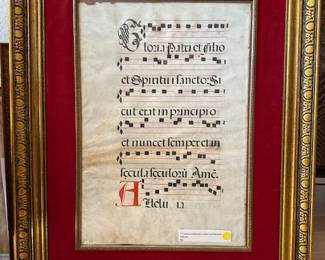 Gloria Patri et filio
et Spiritui sancto: Si
cut erat in principio
et nunc et semper et in
secula seculorū Amē.
Allelu i.a